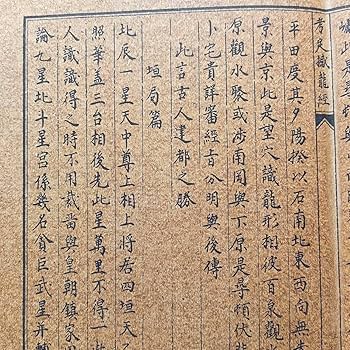 撼龍經
平田度其夕陽揆以石南北東西向無
景與京此是望穴識龍形相彼百泉觀
原觀水聚或涉南岡與下原是尋頓伏
卜宅貴詳審經言分明與後傳
此言古人建都之勝
垣局篇
北辰一星天中尊上相上將居四垣天
照華蓋三台相後先此星萬里不得一
人識識得之時不用裁當與皇朝鎮家
論九星北斗星宮係幾名貪巨武星並輔